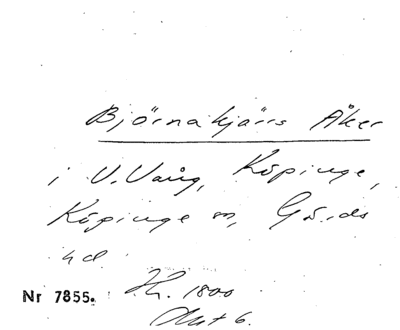 Björnakjärrs Åker
i V. Vång, Köpinge,
Köpinge sn, Gärds
hd
Nr 7855. Hr. 1800
Akt 6.